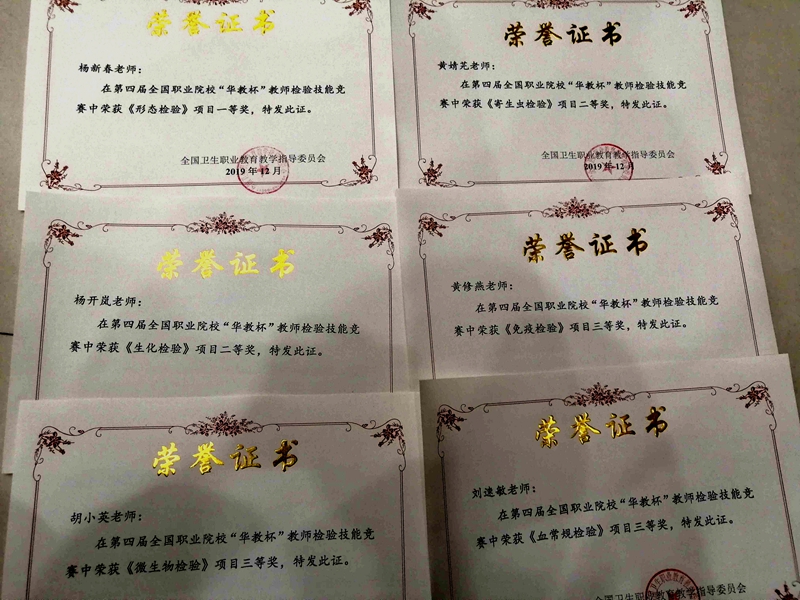 荣誉证书
杨新春老师：
在第四届全国职业院校“华教杯”教师检验技能竞
赛中荣获《形态检验》项目一等奖，特发此证。
全国卫生职业教育教学指导委员会
2019年12月
荣誉证书
黄婧芫老师：
在第四届全国职业院校“华教杯”教师检验技能竞
赛中荣获《寄生虫检验》项目二等奖，特发此证。
全国卫生职业教育教学指导委员会
2019年12月
荣誉证书
杨开岚老师：
在第四届全国职业院校“华教杯”教师检验技能竞
赛中荣获《生化检验》项目二等奖，特发此证。
荣誉证书
黄修燕老师：
在第四届全国职业院校“华教杯”教师检验技能竞
赛中荣获《免疫检验》项目三等奖，特发此证。
荣誉证书
胡小英老师：
在第四届全国职业院校“华教杯”教师检验技能竞
赛中荣获《微生物检验》项目三等奖，特发此证。
荣誉证书
刘速敏老师：
在第四届全国职业院校“华教杯”教师检验技能竞
赛中荣获《血常规检验》项目三等奖，特发此证。
全国卫生职业教育教学指导委员会